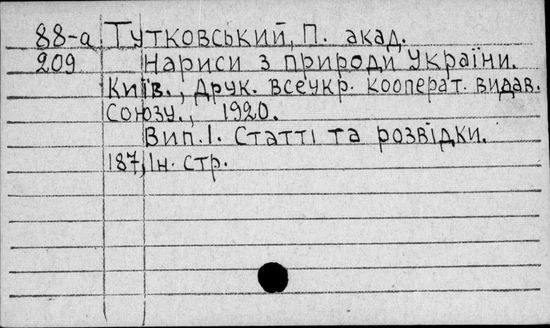 88-а Тутковський, П. акад.
209 Нариси з природи України.
Київ., Друк. всеукр. кооперат. видав.
союзу., 1920.
Вип. І. Статті та розвідки.
187, Ін. стр.